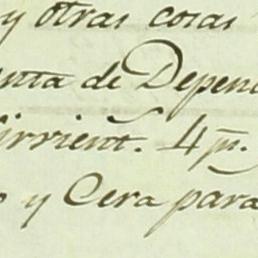 y otras cosas
nta de Depen
Sirvient. 4 p.
y Cera para